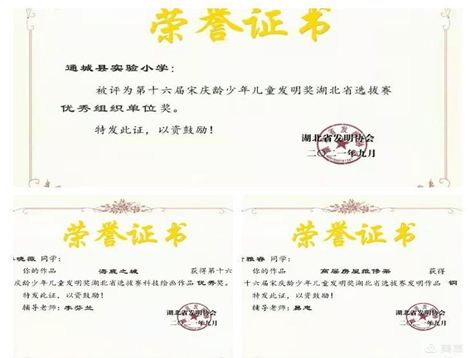 荣誉证书
通城县实验小学：
被评为第十六届宋庆龄少年儿童发明奖湖北省选拔赛
优秀组织单位奖。
特发此证，以资鼓励！
湖北省发明协会
二〇二一年九月
荣誉证书
晓薇 同学：
你的作品 海底之城 获得第十六
庆龄少年儿童发明奖湖北省选拔赛科技绘画作品 优秀奖。
特发此证，以资鼓励！
辅导老师：
湖北省发明协会
二〇二一年九月
荣誉证书
雅睿 同学：
你的作品 高层房屋维修架 获得
十六届宋庆龄少年儿童发明奖湖北省选拔赛发明作品 铜
特发此证，以资鼓励！
辅导老师：
湖北省发明协会
二〇二一年九月